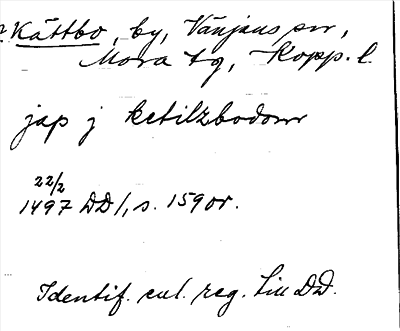 Kättbo, by, Vänjans sn,
Mora tg, Kopp. l.
jap j ketilzbodom
22/2
1497 DD 1, s. 159 or.
Identif. enl. reg. till DD.